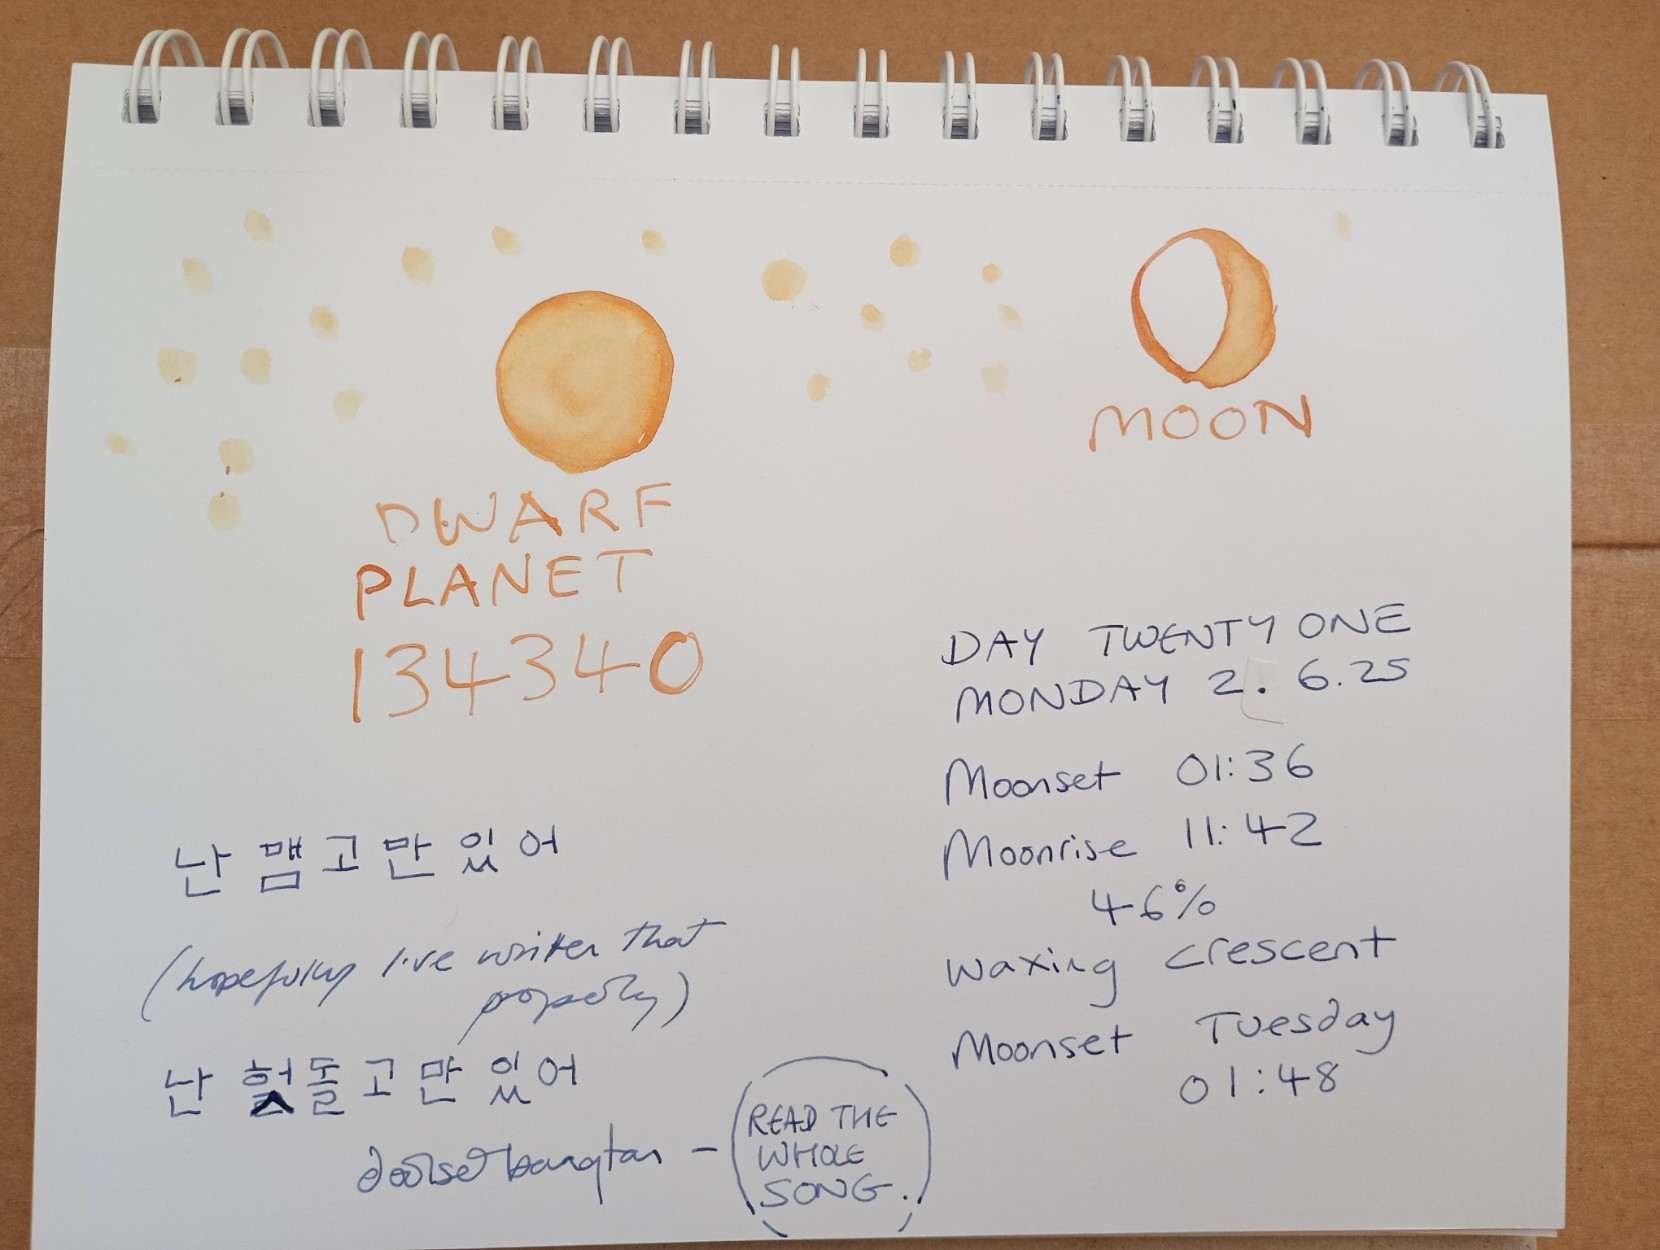 DWARF
PLANET
134340
MOON
난 맴고만 있어
(hopefully I've written that
properly)
난 헛돌고만 있어
dorset bangtan – READ THE
WHOLE
SONG.
DAY TWENTY ONE
MONDAY 2. 6.25
Moonset 01:36
Moonrise 11:42
46%
waxing crescent
Moonset Tuesday
01:48